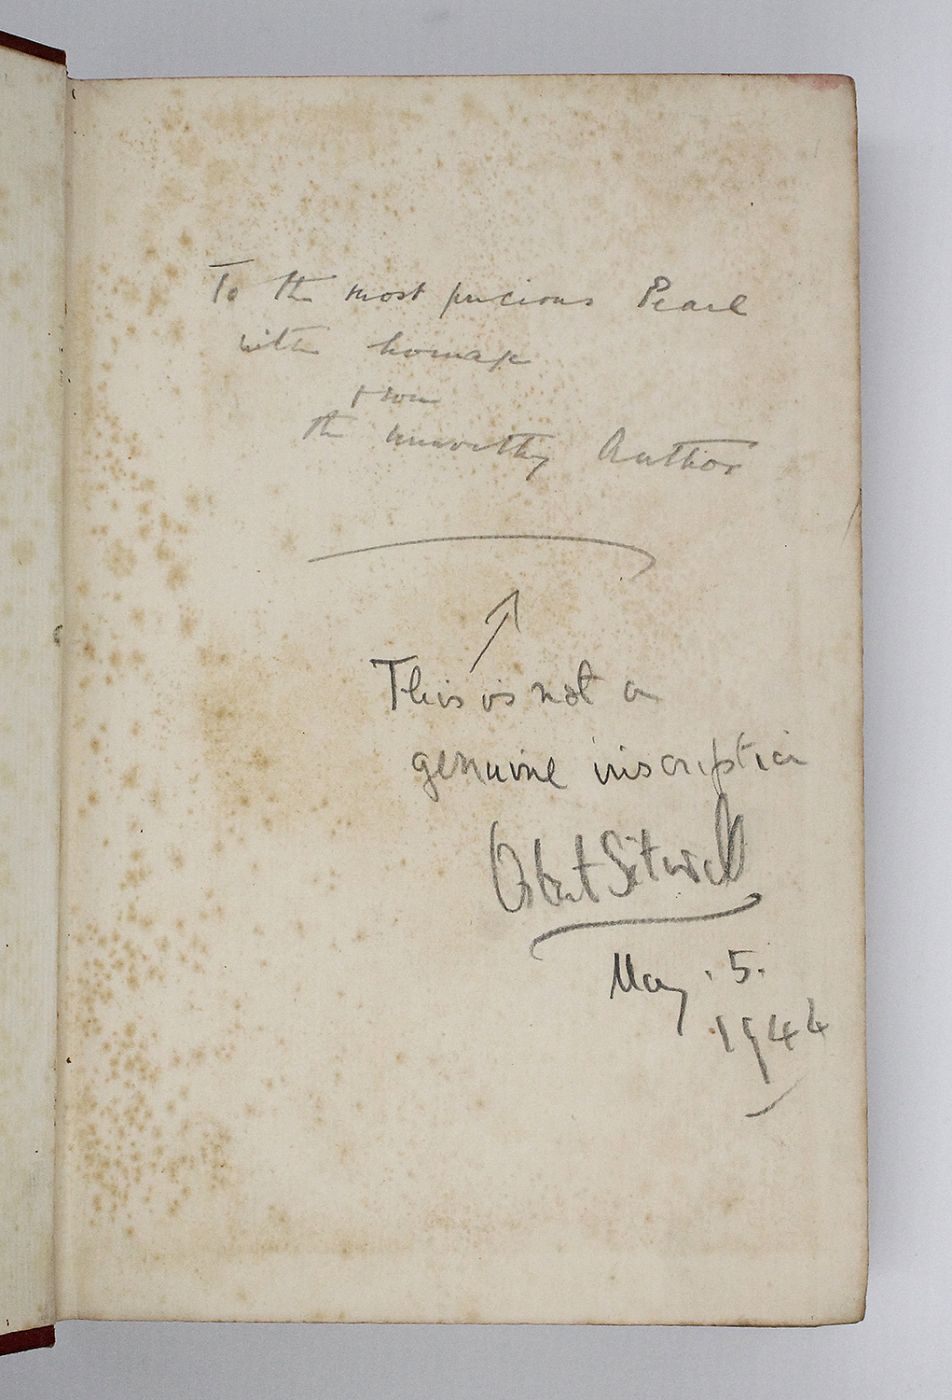 To the most precious Pearl
with homage
from
the unworthy Author
This is not a
genuine inscription
Osbert Sitwell
May. 5.
1944